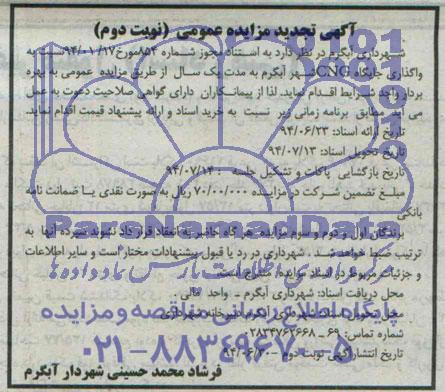 آگهی تجدید مزایده عمومی (نوبت دوم)
شهرداری آبگرم در نظر دارد به استناد مجوز شماره ۸۵۳مورخ ۹۴/۰۱/۱۷نسبت به
واگذاری جایگاه CNGشهر آبگرم به مدت یک سال از طریق مزایده عمومی به بهره
بردار واجد شرایط اقدام نماید. لذا از پیمانکاران دارای گواهی صلاحیت دعوت به عمل
می آید مطابق برنامه زمانی زیر نسبت به خرید اسناد و ارائه پیشنهاد قیمت اقدام نماید.
تاریخ ارائه اسناد: ۹۴/۰۶/۲۳
تاریخ تحویل اسناد: ۹۴/۰۷/۱۳
تاریخ بازگشایی پاکات و تشکیل جلسه : ۹۴/۰۷/۱۴
مبلغ تضمین شرکت در مزایده ۷۰/۰۰۰/۰۰۰ ریال به صورت نقدی یا ضمانت نامه
بانکی
برندگان اول و دوم و سوم مزایده هر گاه حاضر به انعقاد قرار داد نشوند سپرده آنها به
ترتیب ضبط خواهد شد . شهرداری در رد یا قبول پیشنهادات مختار است و سایر اطلاعات
و جزئیات مربوط در اسناد مزایده مندرج است.
محل دریافت اسناد: شهرداری آبگرم ـ واحد مالی
محل تحویل اسناد: شهرداری آبگرم دبیرخانه شهرداری
شماره تماس: ۶۹ ـ ۰۲۸۳۴۷۶۲۶۶۸
تاریخ انتشار آگهی نوبت دوم ۹۴/۰۶/۳۰
فرشاد محمد حسینی شهردار آبگرم
ParsNamadData
پایگاه اطلاع رسانی مناقصه و مزایده
۰۲۱-۸۸۳۴۹۶۷۰-۵